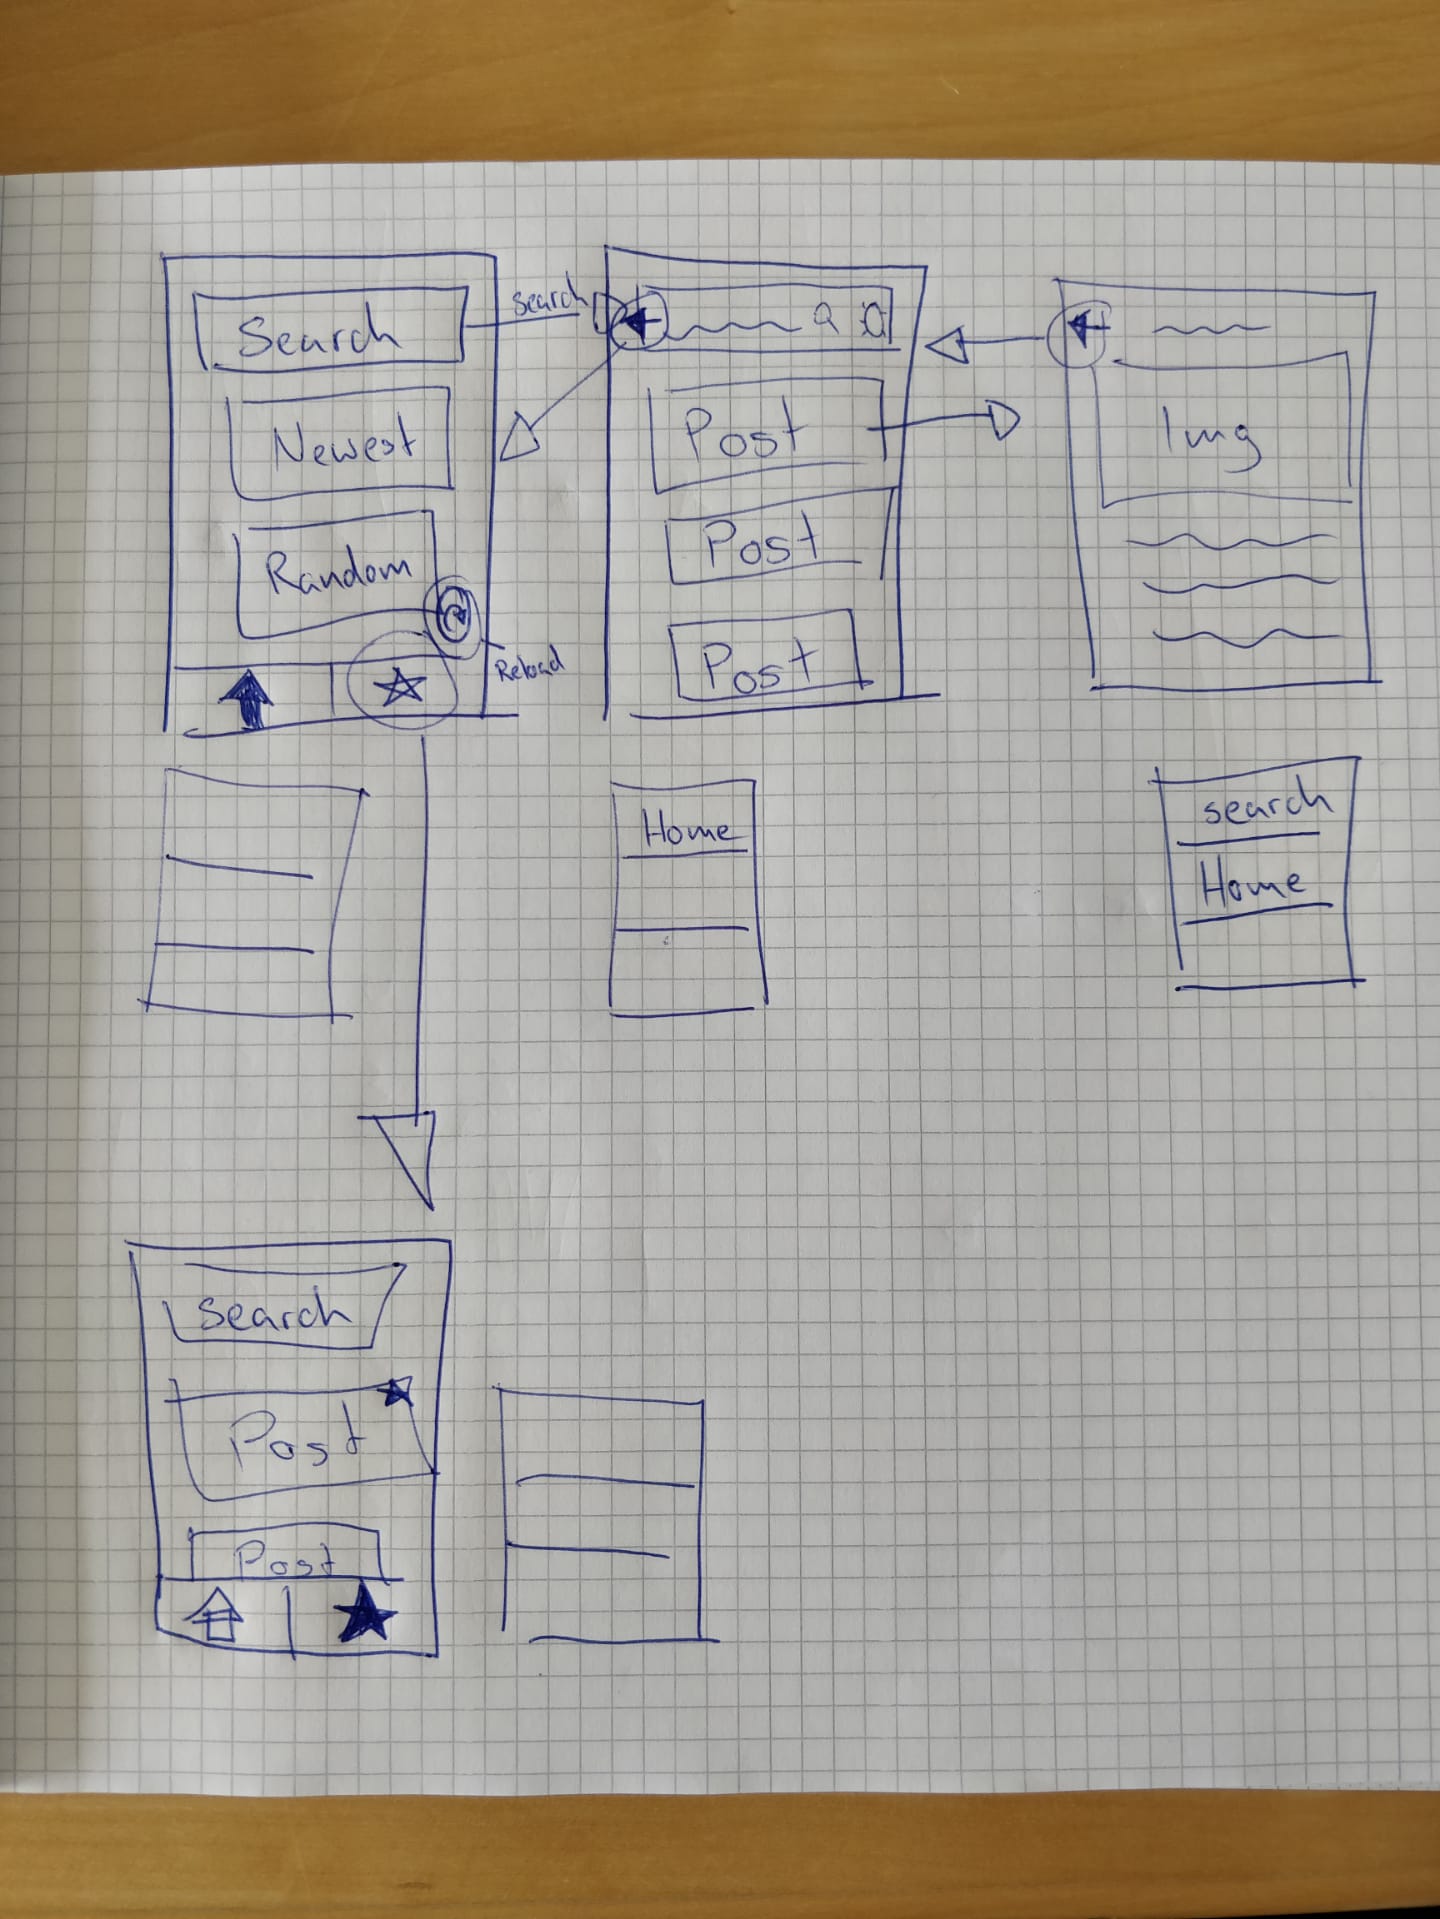 Search
Newest
Random
Reload
search
Post
Post
Post
Img
Home
search
Home
search
Post
Post